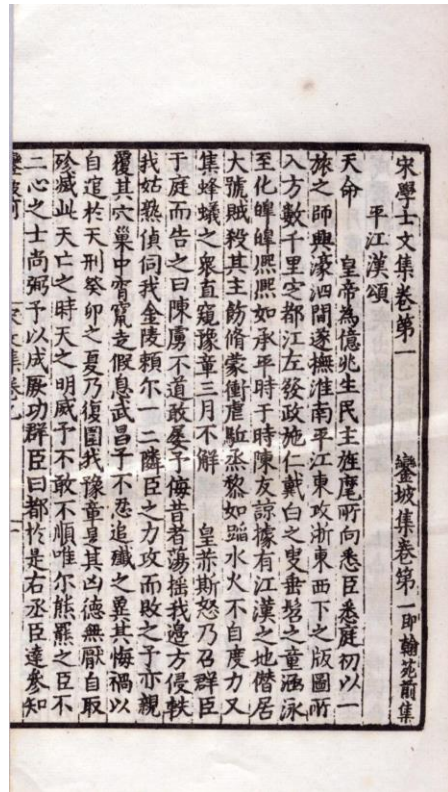 宋學士文集卷第一　鑾坡集卷第一即翰苑前集
平江漢頌
天命　皇帝為億兆生民主旌麾所向悉臣悉庭初以一
旅之師興濠泗間遂撫淮南平江東攻浙東西下之版圖所
入方數千里定都江左發政施仁戴白之叟垂髫之童涵泳
至化皥皥熈熈如承平時于時陳友諒據有江漢之地僭居
大號賊殺其主飭脩蒙衝虐駈烝黎如蹈水火不自度力又
集蜂蟻之衆直窺豫章三月不解　皇赫斯怒乃召群臣
于庭而告之曰陳虜不道敢屡予侮昔者蕩揺我邉方侵軼
我姑熟偵伺我金陵頼尔一二隣臣之力攻而敗之予亦親
覆其穴巢中宵竄走假息武昌予不忍追殱之冀其悔禍以
自逭於天刑癸卯之夏乃復圍我豫章是其凶德無厭自取
殄滅此天亡之時天之明威予不敢不順唯尔熊羆之臣不
二心之士尚弼予以成厥功群臣曰都於是右丞臣達參知